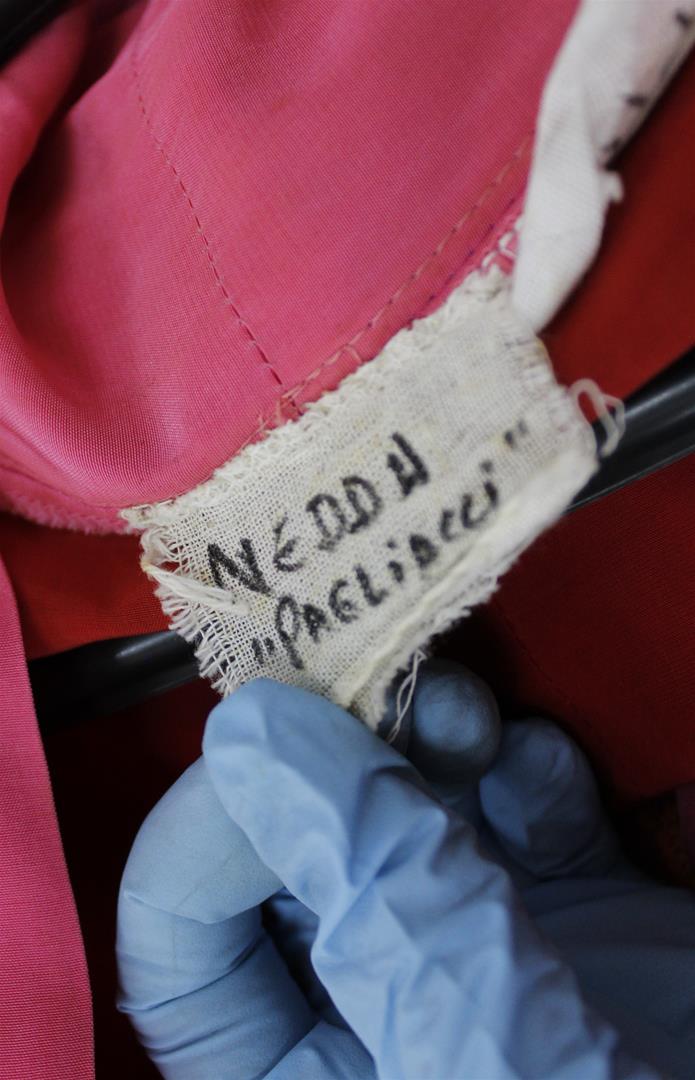 NEDDA
"PAGLiACCi"